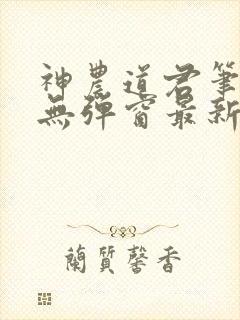 神農道君筆
無彈窗最新
蘭質馨香